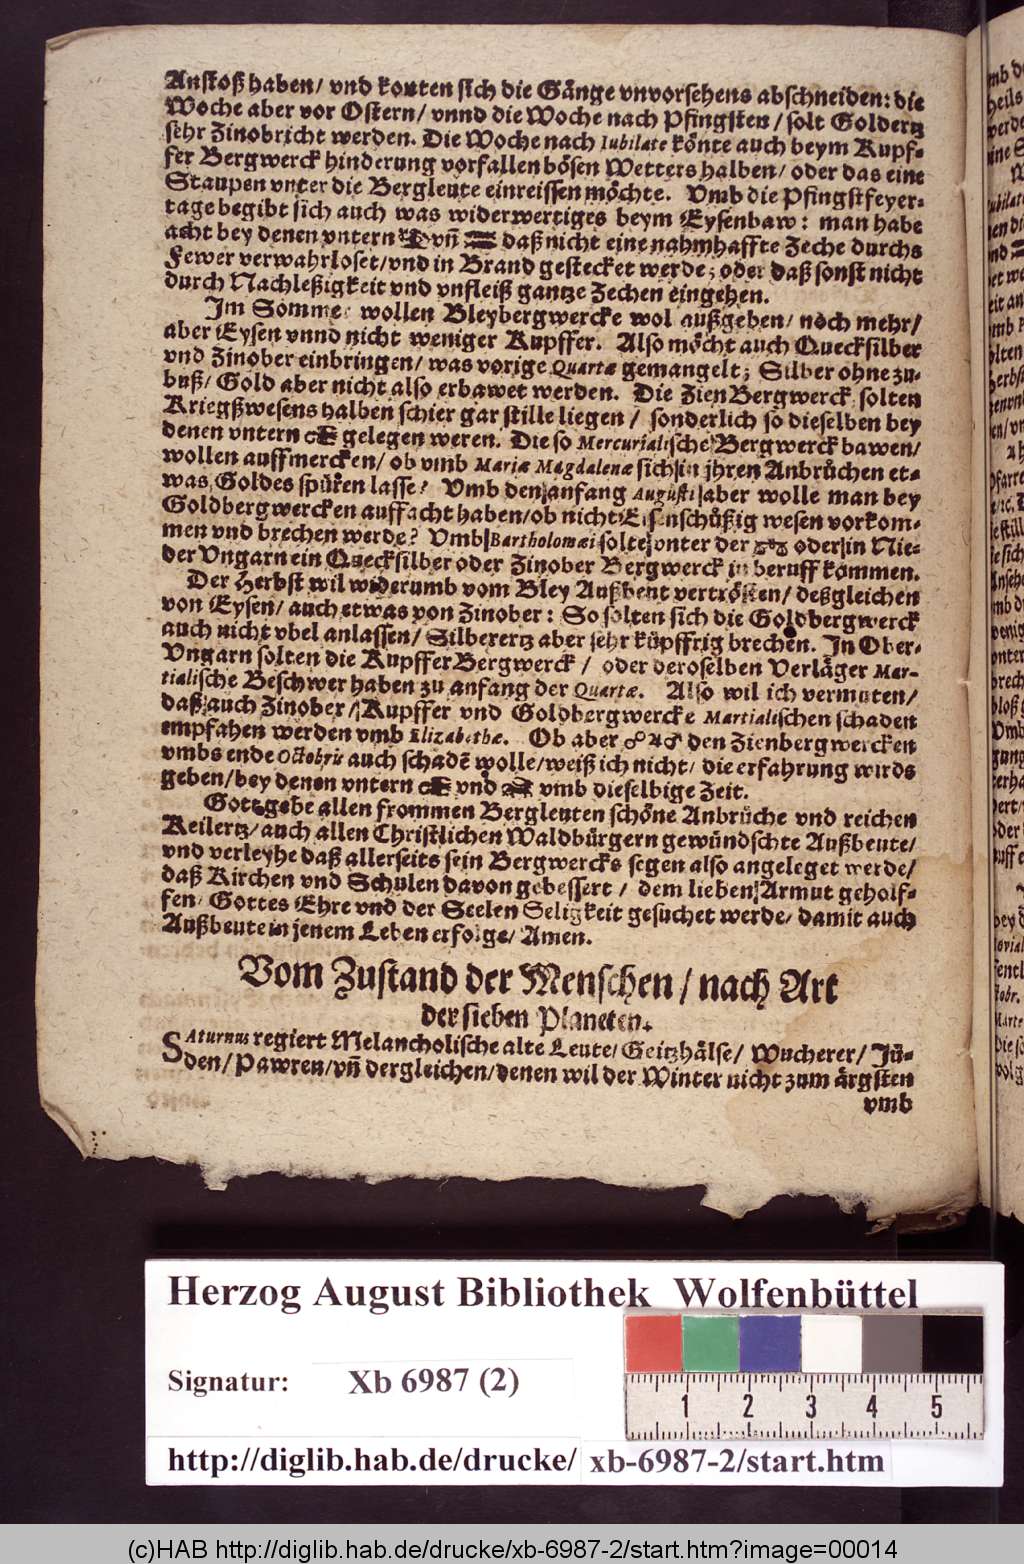 Anstoß haben/ vnd konten sich die Gänge vnvorsehens abschneiden: die
Woche aber vor Ostern/ vnnd die Woche nach Pfingsten/ solt Goldertz
sehr Zinobricht werden. Die Woche nach Iubilate könte auch beym Kupf-
fer Bergwerck hinderung vorfallen bösen Wetters halben/ oder das eine
Staupen vnter die Bergleute einreissen möchte. Vmb die Pfingstfeyer-
tage begibt sich auch was widerwertiges beym Eysenbaw: man habe
acht bey denen vntern vñ daß nicht eine nahmhaffte Zeche durchs
Fewer verwahrloset/ vnd in Brand gestecket werde; oder daß sonst nicht
durch Nachleßigkeit vnd vnfleiß gantze Zechen eingehen.
Im Sommer wollen Bleybergwercke wol außgeben/ noch mehr/
aber Eysen vnnd nicht weniger Kupffer. Also möcht auch Quecksilber
vnd Zinober einbringen/ was vorige Quartæ gemangelt; Silber ohne zu-
buß/ Gold aber nicht also erbawet werden. Die Zien Bergwerck solten
Kriegßwesens halben schier gar stille liegen/ sonderlich so dieselben bey
denen vntern gelegen weren. Die so Mercurialische Bergwerck bawen/
wollen auffmercken/ ob vmb Mariæ Magdalenæ sich in jhren Anbrüchen et-
was Goldes spüren lasse? Vmb den anfang Augusti aber wolle man bey
Goldbergwercken auffacht haben/ ob nicht Eisenschüßig wesen vorkom-
men vnd brechen werde? Vmb Bartholomæi solte vnter der ♉ oder in Nie-
der Vngarn ein Quecksilber oder Zinober Bergwerck in beruff kommen.
Der Herbst wil widerumb vom Bley Außbeut vertrösten/ deßgleichen
von Eysen/ auch etwas von Zinober: So solten sich die Goldbergwerck
auch nicht vbel anlassen/ Silberertz aber sehr küpffrig brechen. In Ober-
Vngarn solten die Kupffer Bergwerck/ oder deroselben Verläger Mar-
tialische Beschwer haben zu anfang der Quartæ. Also wil ich vermuten/
daß auch Zinober/ Kupffer vnd Goldbergwercke Martialischen schaden
empfahen werden vmb Elizabethæ. Ob aber ☍ ♃ ♂ den Zienbergwercken
vmbs ende Octobris auch schadē wolle/ weiß ich nicht/ die erfahrung wirds
geben/ bey denen vntern vnd vmb dieselbige Zeit.
Gott gebe allen frommen Bergleuten schöne Anbrüche vnd reichen
Keilertz/ auch allen Christlichen Waldbürgern gewündschte Außbeute/
vnd verleyhe daß allerseits sein Bergwercks segen also angeleget werde/
daß Kirchen vnd Schulen davon gebessert/ dem lieben Armut geholf-
fen/ Gottes Ehre vnd der Seelen Seligkeit gesuchet werde/ damit auch
Außbeute in jenem Leben erfolge/ Amen.
Vom Zustand der Menschen/ nach Art
der sieben Planeten.
SAturnus regiert Melancholische alte Leute/ Geitzhälse/ Wucherer/ Jü-
den/ Pawren/ vñ dergleichen/ denen wil der Winter nicht zum ärgsten
vmb
Herzog August Bibliothek Wolfenbüttel
Signatur: Xb 6987 (2)
1 2 3 4 5
http://diglib.hab.de/drucke/ xb-6987-2/start.htm
(c)HAB http://diglib.hab.de/drucke/xb-6987-2/start.htm?image=00014